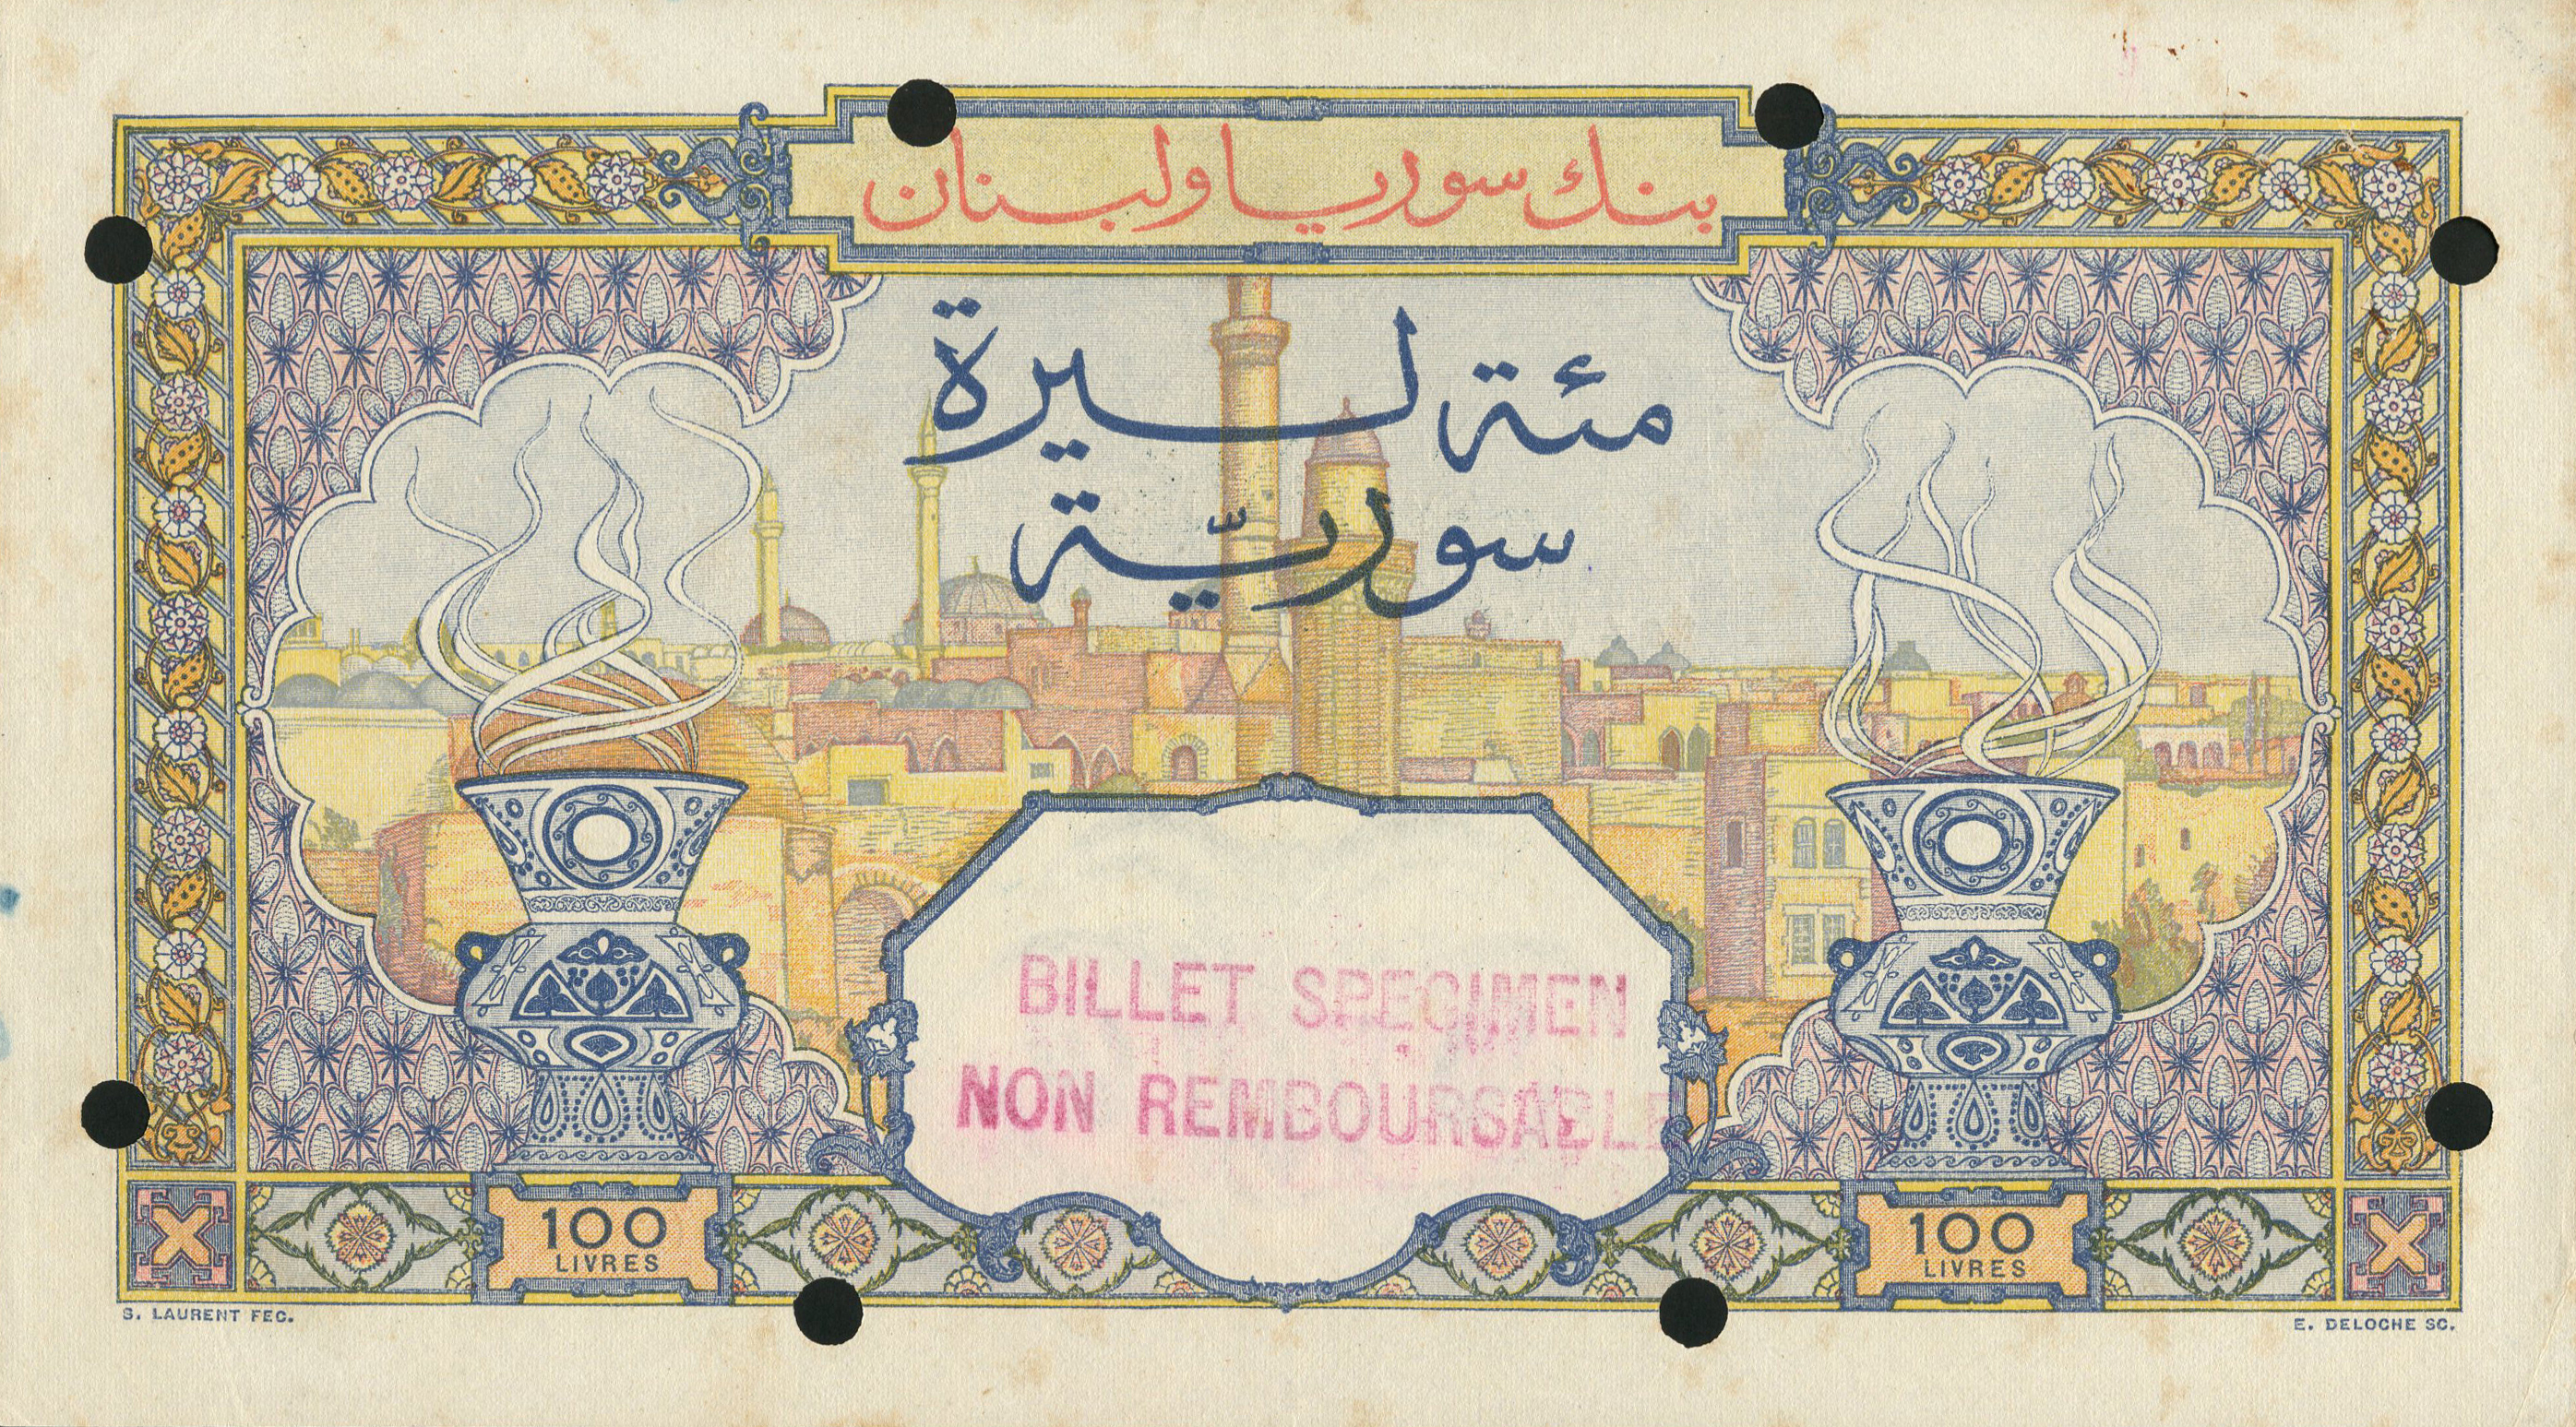 بنك سوريا ولبنان
مئة ليرة
سوريّة
BILLET SPECIMEN
NON REMBOURSABLE
100
LIVRES
100
LIVRES
S. LAURENT FEC.
E. DELOCHE SC.